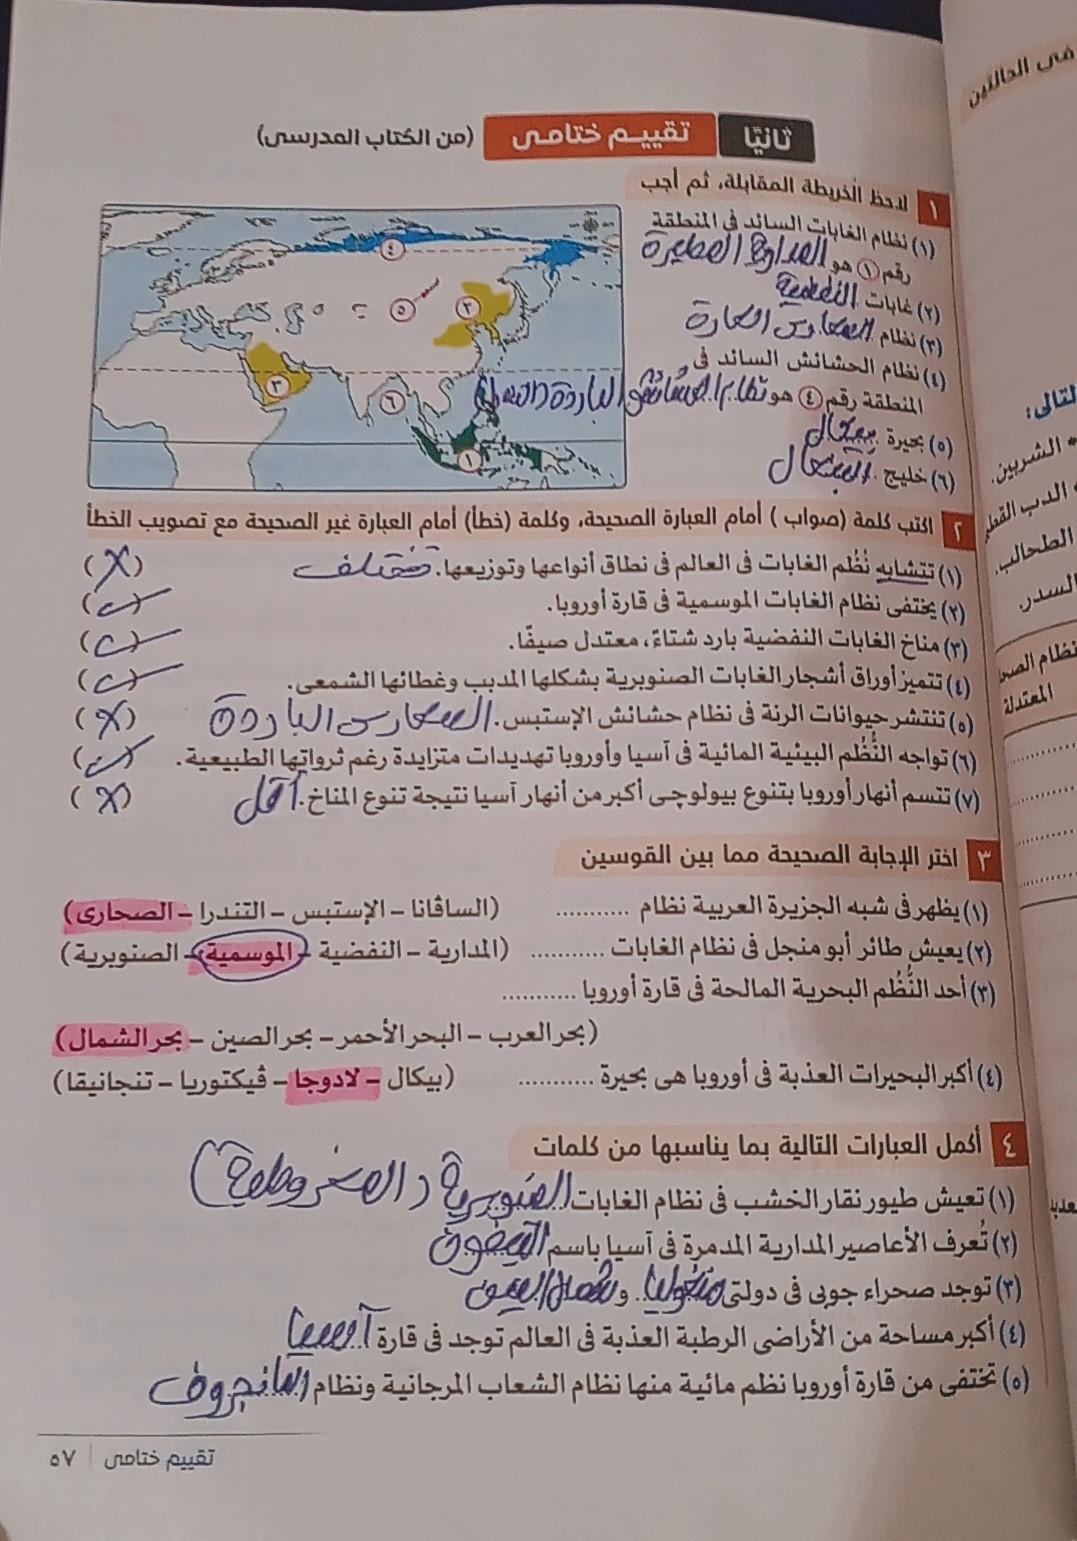 فى الحالتين
ثانيًا تقييم ختامى (من الكتاب المدرسى)
١ لاحظ الخريطة المقابلة، ثم أجب
(١) نظام الغابات السائد فى المنطقة
رقم ١ هو المدارية المطيرة
(٢) غابات النفضية
(٣) نظام الصحارى الحارة
(٤) نظام الحشائش السائد فى
المنطقة رقم ٤ هو نظام الحشائش الباردة
(٥) بحيرة بيكال
(٦) خليج البنغال
٤
٥
٢
٣
٦
١
٢ اكتب كلمة (صواب) أمام العبارة الصحيحة، وكلمة (خطأ) أمام العبارة غير الصحيحة مع تصويب الخطأ
(١) تتشابه نُظُم الغابات فى العالم فى نطاق أنواعها وتوزيعها. تختلف (X)
(٢) يختفى نظام الغابات الموسمية فى قارة أوروبا. (✓)
(٣) مناخ الغابات النفضية بارد شتاءً، معتدل صيفًا. (✓)
(٤) تتميز أوراق أشجار الغابات الصنوبرية بشكلها المدبب وغطائها الشمعى. (✓)
(٥) تنتشر حيوانات الرنة فى نظام حشائش الإستبس. الصحارى الباردة (X)
(٦) تواجه النُّظُم البيئية المائية فى آسيا وأوروبا تهديدات متزايدة رغم ثرواتها الطبيعية. (✓)
(٧) تتسم أنهار أوروبا بتنوع بيولوجى أكبر من أنهار آسيا نتيجة تنوع المناخ. أقل (X)
٣ اختر الإجابة الصحيحة مما بين القوسين
(١) يظهر فى شبه الجزيرة العربية نظام ........... (الساڤانا – الإستبس – التندرا – الصحارى)
(٢) يعيش طائر أبو منجل فى نظام الغابات ........... (المدارية – النفضية – الموسمية – الصنوبرية)
(٣) أحد النُّظُم البحرية المالحة فى قارة أوروبا ...........
(بحر العرب – البحر الأحمر – بحر الصين – بحر الشمال)
(٤) أكبر البحيرات العذبة فى أوروبا هى بحيرة ........... (بيكال – لادوجا – ڤيكتوريا – تنجانيقا)
٤ أكمل العبارات التالية بما يناسبها من كلمات
(١) تعيش طيور نقار الخشب فى نظام الغابات الصنوبرية (المخروطية)
(٢) تُعرف الأعاصير المدارية المدمرة فى آسيا باسم التيفون
(٣) توجد صحراء جوبى فى دولتى منغوليا و شمال الصين
(٤) أكبر مساحة من الأراضى الرطبة العذبة فى العالم توجد فى قارة آسيا
(٥) تختفى من قارة أوروبا نظم مائية منها نظام الشعاب المرجانية ونظام المانجروف
تقييم ختامى | ٥٧
لتالى:
• الشربين.
الدب القط
الطحالب.
السدر.
نظام الصح
المعتدلة